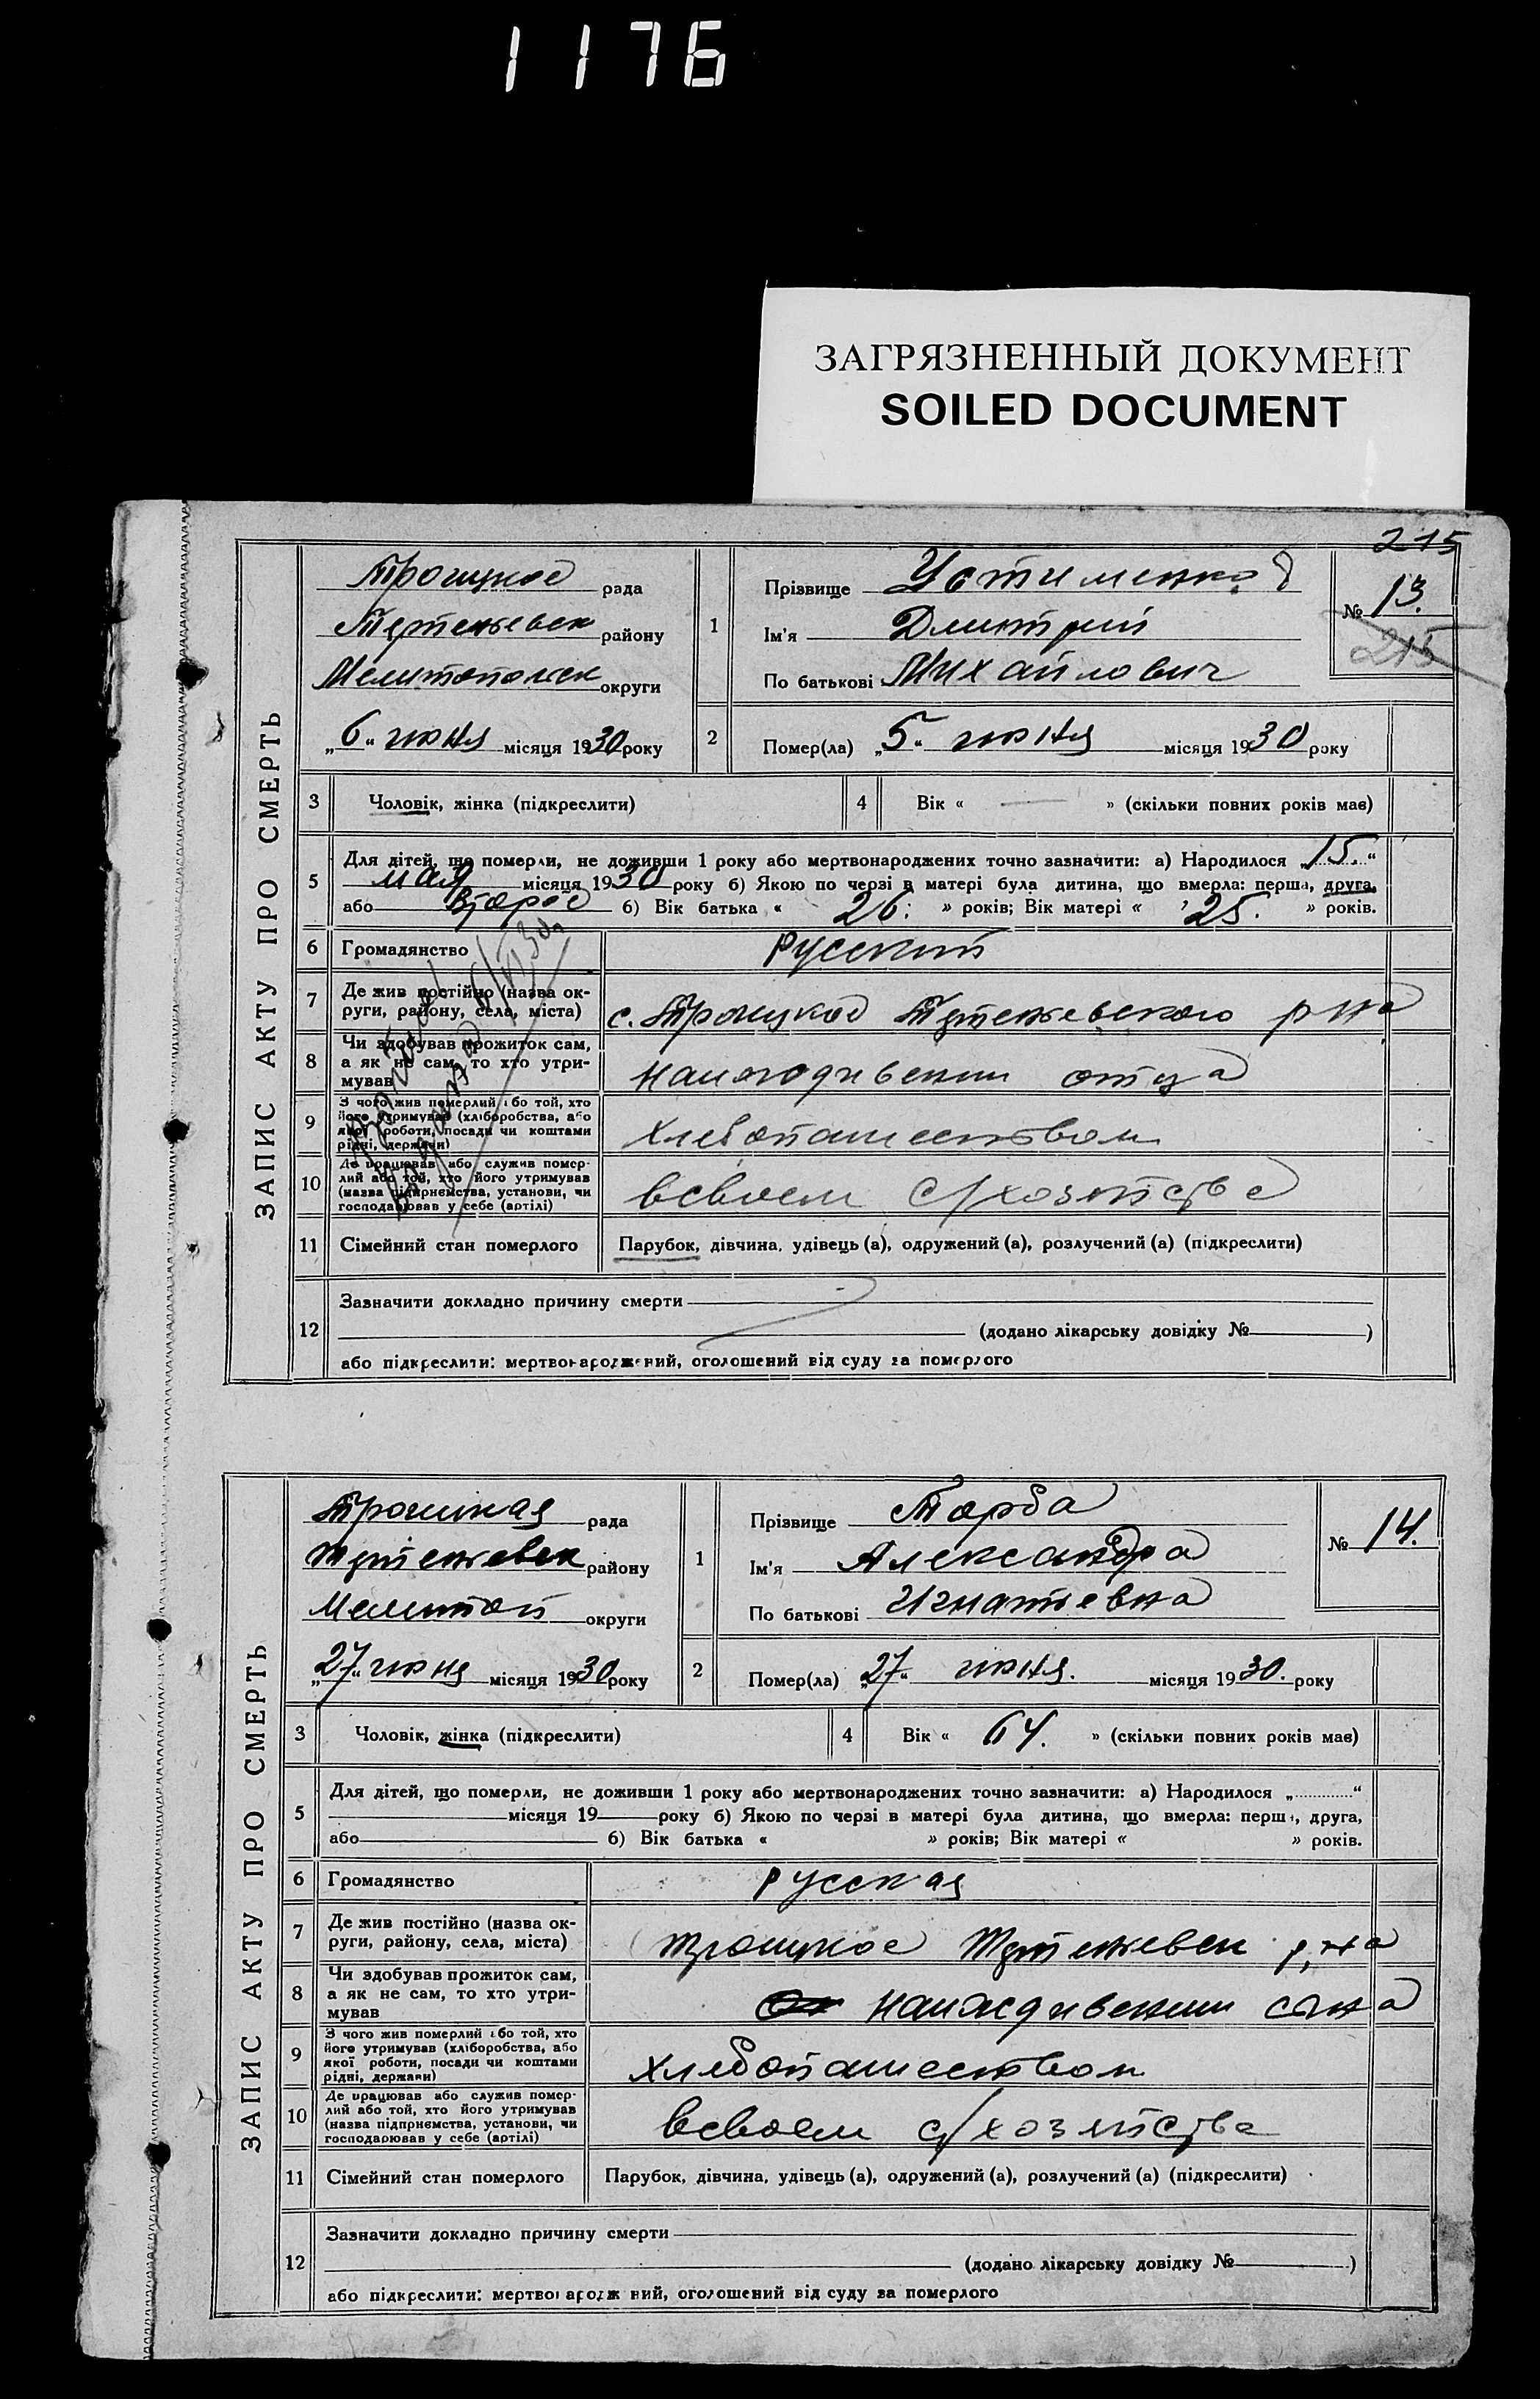 1176
ЗАГРЯЗНЕННЫЙ ДОКУМЕНТ
SOILED DOCUMENT
215
ЗАПИС АКТУ ПРО СМЕРТЬ
Троицкое рада
району
Мелитопольск округи
„6“ июня місяця 1930 року
1
Прізвище Устименко
Ім'я Дмитрий
По батькові Михайлович
№ 13.
215
2
Помер(ла) „5“ июня місяця 1930 року
3 Чоловік, жінка (підкреслити)
4 Вік « — » (скільки повних років має)
5 Для дітей, що померли, не доживши 1 року або мертвонароджених точно зазначити: а) Народилося „15.“
мая місяця 1930 року б) Якою по черзі в матері була дитина, що вмерла: перша, друга,
або второе б) Вік батька « 26. » років; Вік матері « 25. » років.
6 Громадянство русский
7 Де жив постійно (назва ок-
руги, району, села, міста) с. Троицкое р на
8 Чи здобував прожиток сам,
а як не сам, то хто утри-
мував на иждивении отца
9 З чого жив померлий або той, хто
його утримував (хліборобства, або
якої роботи, посади чи коштами
рідні, держави) хлебопашеством
10 Де працював або служив помер-
лий або той, хто його утримував
(назва підприємства, установи, чи
господарював у себе (артілі) всвоем с/хозяйстве
11 Сімейний стан померлого Парубок, дівчина, удівець (а), одружений (а), розлучений (а) (підкреслити)
12 Зазначити докладно причину смерти
(додано лікарську довідку № )
або підкреслити: мертвонароджений, оголошений від суду за померлого
ЗАПИС АКТУ ПРО СМЕРТЬ
Троицкая рада
району
Мелитоп округи
„27“ июня місяця 1930 року
1
Прізвище Торба
Ім'я Александра
По батькові Игнатьевна
№ 14.
2
Помер(ла) „27“ июня. місяця 1930. року
3 Чоловік, жінка (підкреслити)
4 Вік « 64. » (скільки повних років має)
5 Для дітей, що померли, не доживши 1 року або мертвонароджених точно зазначити: а) Народилося „ “
місяця 19 року б) Якою по черзі в матері була дитина, що вмерла: перша, друга,
або б) Вік батька « » років; Вік матері « » років.
6 Громадянство русская
7 Де жив постійно (назва ок-
руги, району, села, міста) Троицкое р,на
8 Чи здобував прожиток сам,
а як не сам, то хто утри-
мував на иждивении сына
9 З чого жив померлий або той, хто
його утримував (хліборобства, або
якої роботи, посади чи коштами
рідні, держави) хлебопашеством
10 Де працював або служив помер-
лий або той, хто його утримував
(назва підприємства, установи, чи
господарював у себе (артілі) всвоем с/хозяйстве
11 Сімейний стан померлого Парубок, дівчина, удівець (а), одружений (а), розлучений (а) (підкреслити)
12 Зазначити докладно причину смерти
(додано лікарську довідку № )
або підкреслити: мертвонароджений, оголошений від суду за померлого